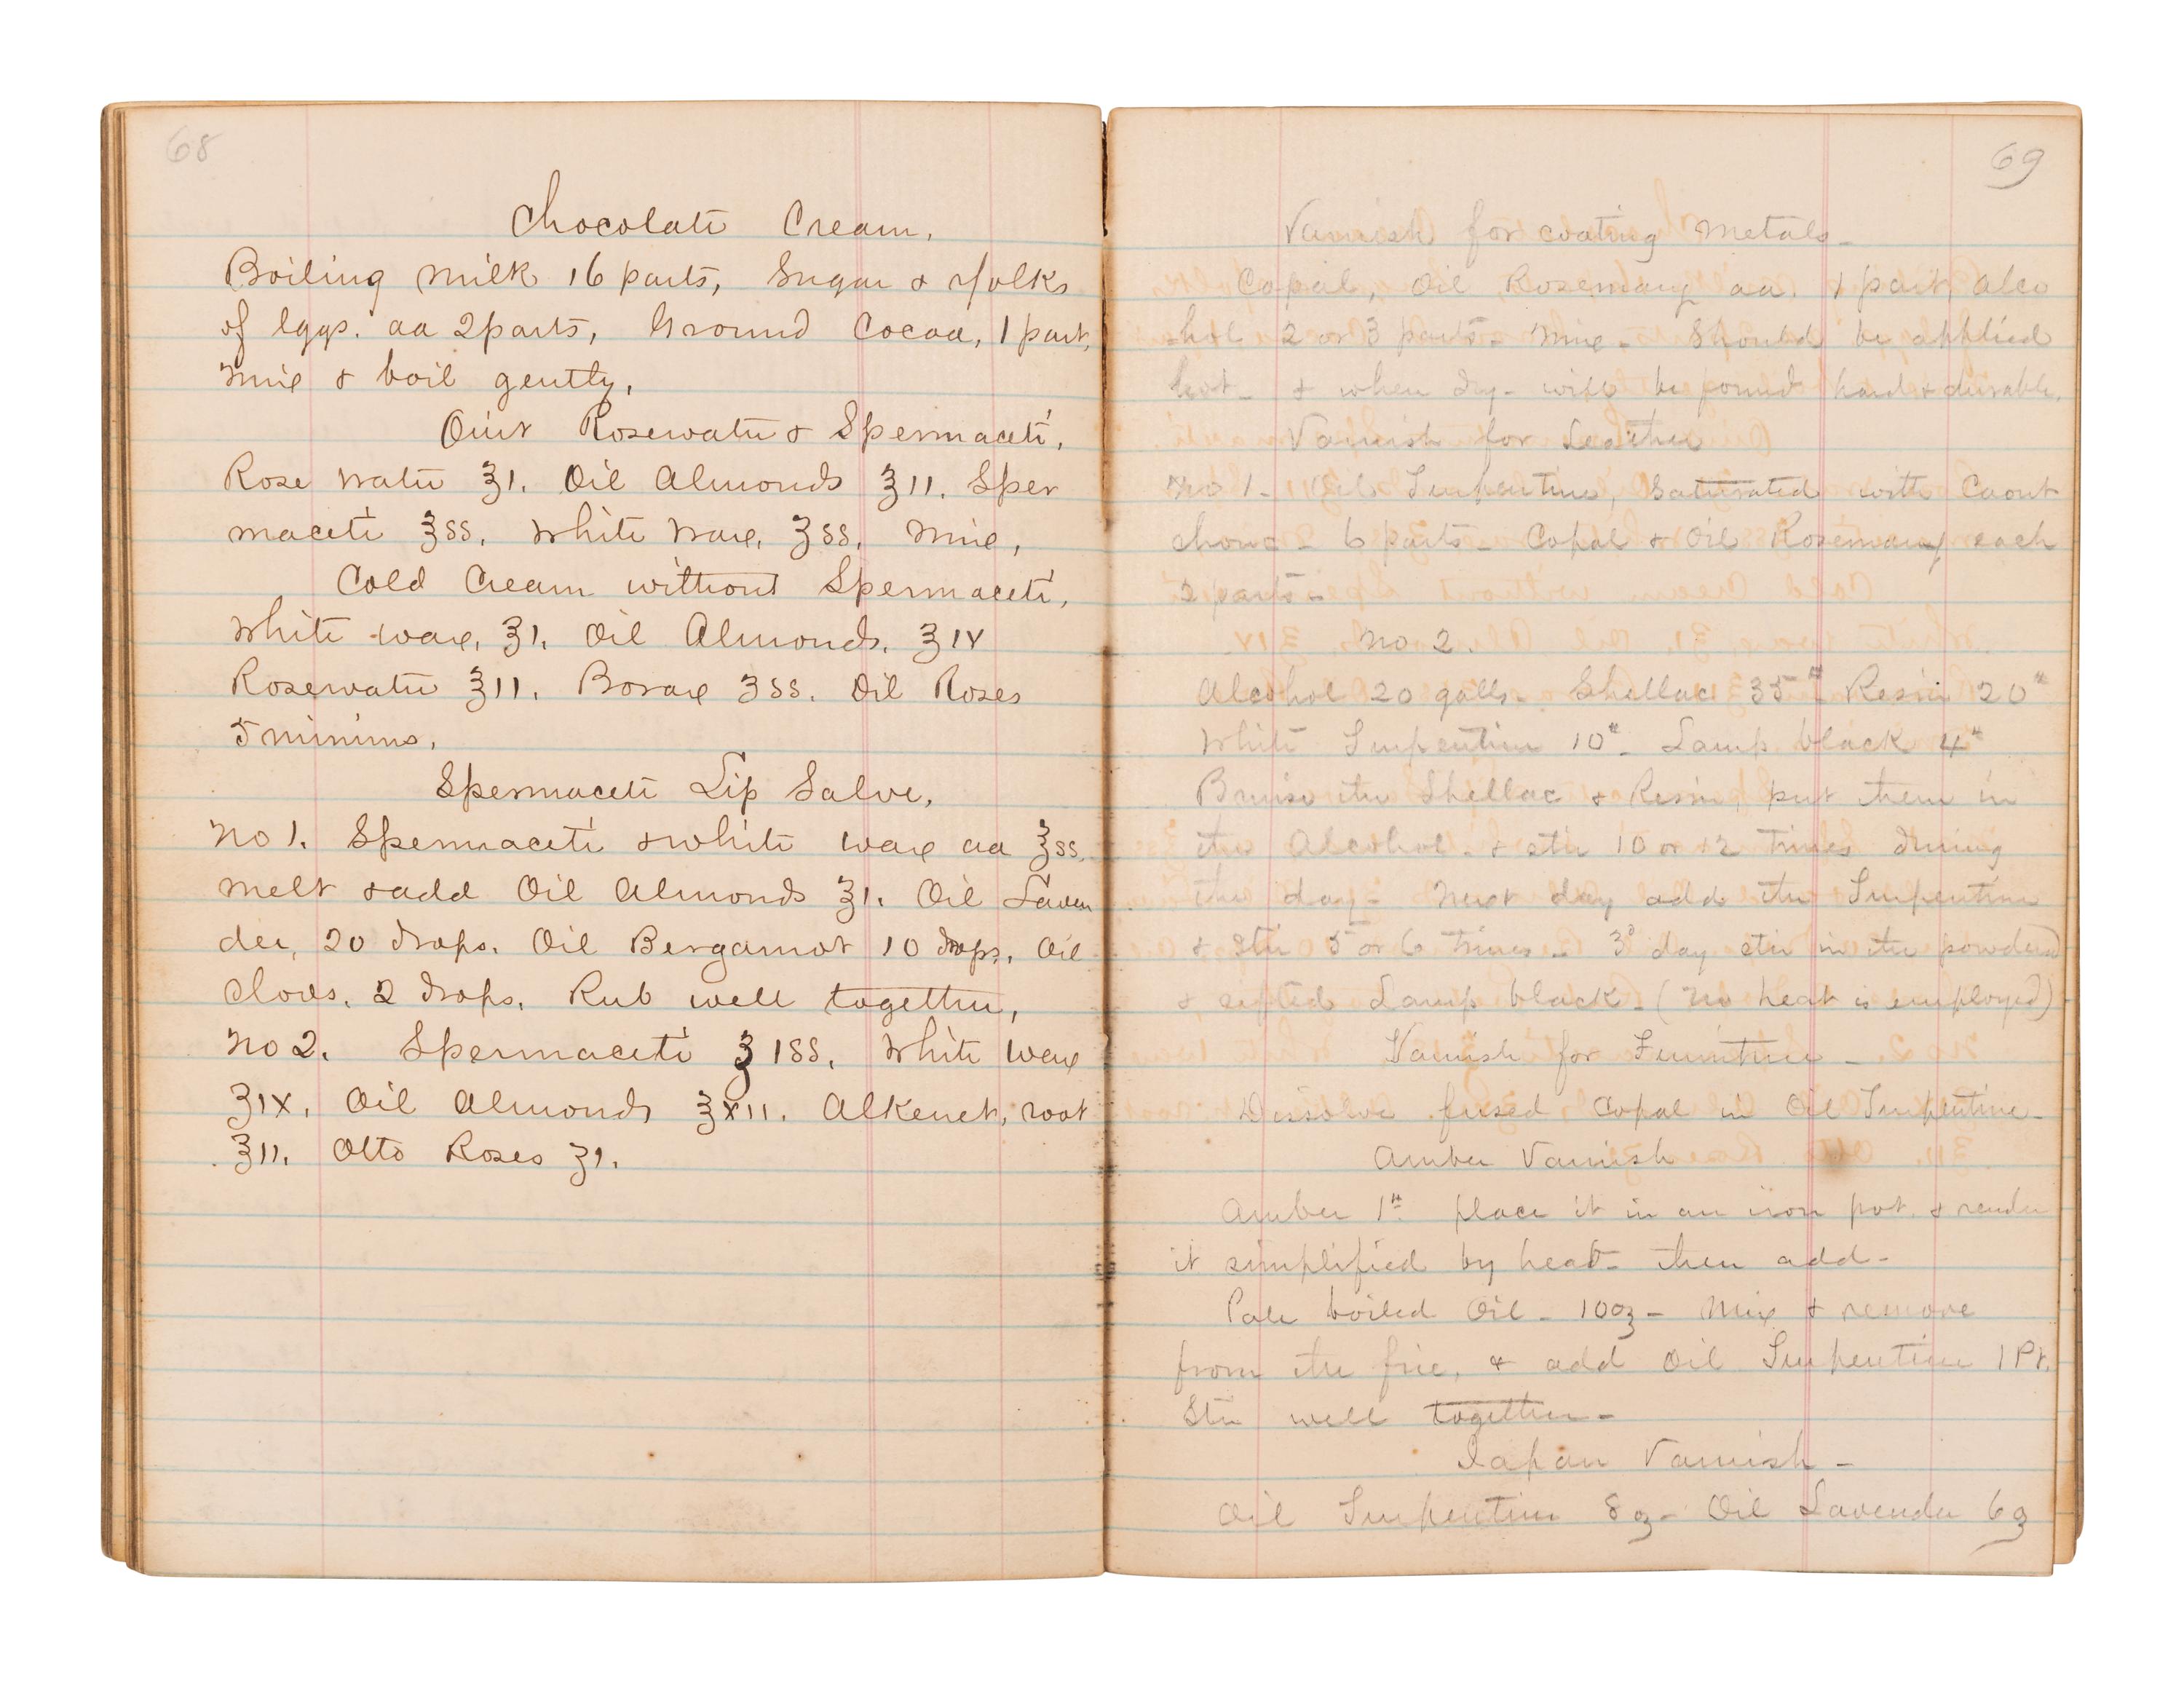 68
Chocolate Cream,
Boiling Milk 16 parts, Sugar & Yolks
of Eggs. aa 2 parts, Ground Cocoa, 1 part,
Mix & boil gently,
Oint Rosewater & Spermaceti,
Rose Water ℥1. Oil Almonds ℥11. Sper
maceti ℥ss. White Wax, ℥ss, Mix,
Cold Cream without Spermaceti,
White wax, ℥1. Oil Almonds. ℥1V
Rosewater ℥11. Borax ʒss. Oil Roses
5 minims,
Spermaceti Lip Salve,
No 1. Spermaceti & white wax aa ℥ss.
Melt & add Oil Almonds ℥1. Oil Laven
der, 20 drops. Oil Bergamot 10 drops, Oil
Cloves, 2 drops, Rub well together,
No 2. Spermaceti ℥1ss. White Wax
ʒ1X, Oil Almonds ℥X11. Alkenet, root
℥11. Otto Roses ʒ1.
69
Varnish for coating Metals -
Copal, Oil Rosemary aa. 1 part, Alco
hol 2 or 3 parts - Mix - Should be applied
hot - & when dry - will be found hard & durable.
Varnish for Leather
No 1 - Oil Turpentine, saturated with Caout
chouc - 6 parts - Copal & Oil Rosemary each
2 parts -
No 2.
Alcohol 20 galls - Shellac 35# Resin 20#
White Turpentine 10# - Lamp black 4#
Bruise the Shellac & Resin, put them in
the Alcohol - & stir 10 or 12 times during
the day - Next day add the Turpentine
& Stir 5 or 6 times - 3d day stir in the powdered
& sifted Lamp black - (No heat is employed)
Varnish for Furniture -
Dissolve fused Copal in Oil Turpentine -
Amber Varnish
Amber 1# place it in an iron pot & render
it simplified by heat - then add -
Pale boiled Oil - 10℥ - Mix & remove
from the fire, & add Oil Turpentine 1 Pt.
Stir well together -
Japan Varnish -
Oil Turpentine 8℥ - Oil Lavender 6℥